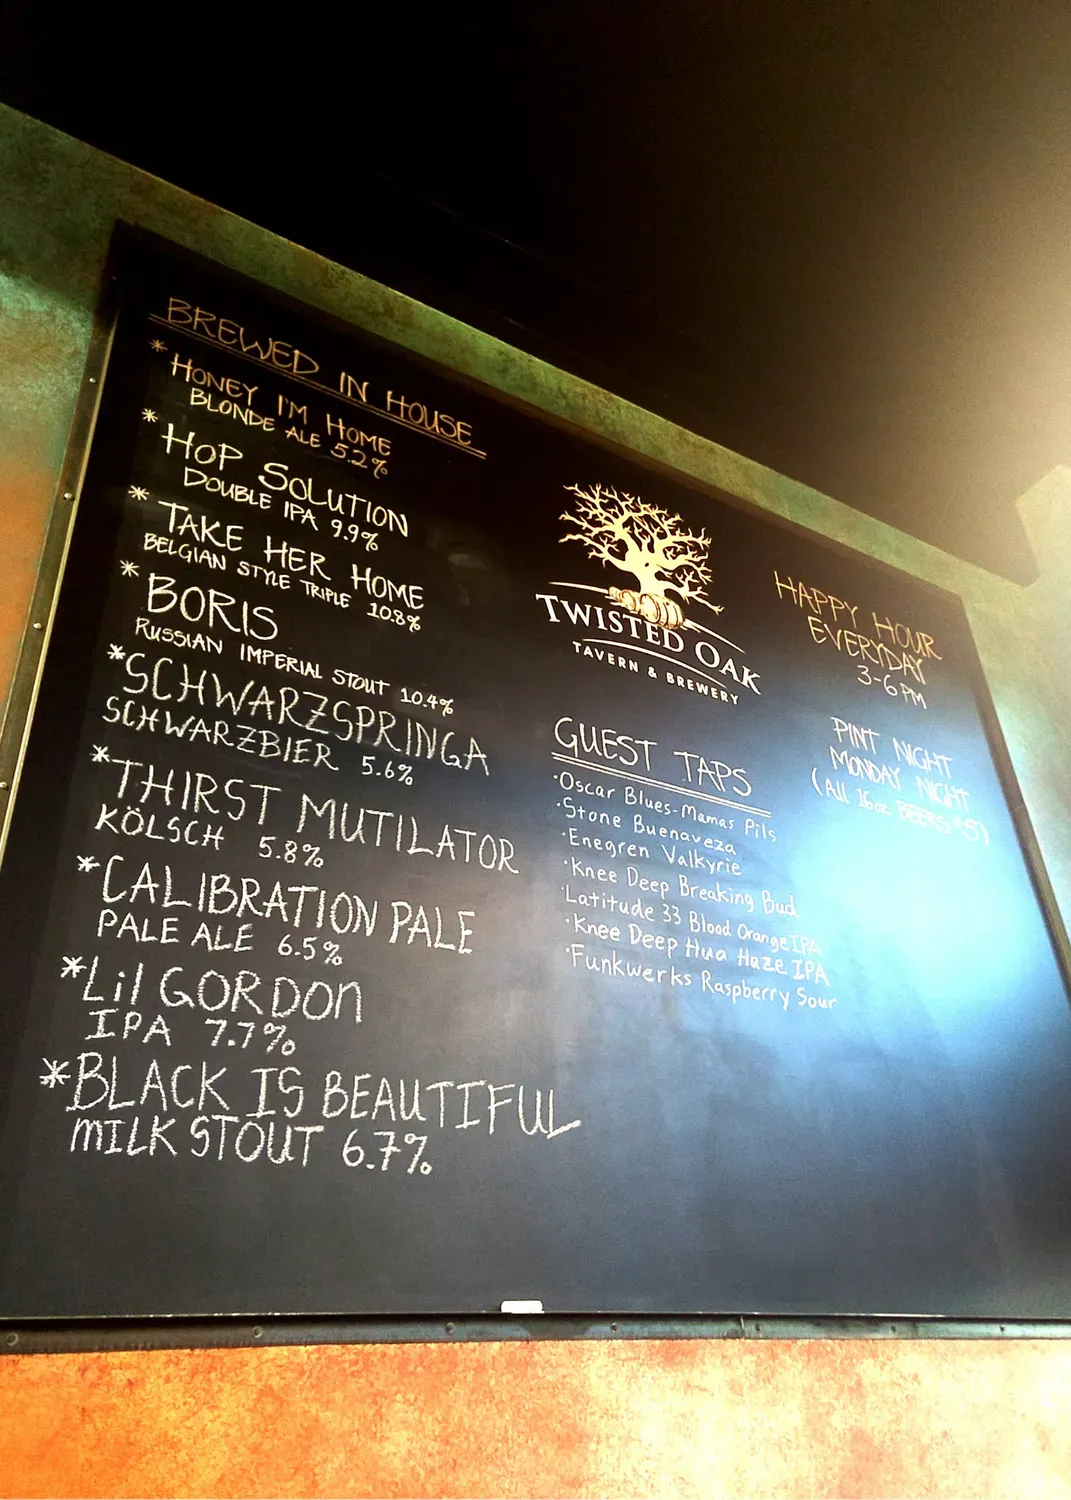 BREWED IN HOUSE
* HONEY I'M HOME
BLONDE ALE 5.2%
* HOP SOLUTION
DOUBLE IPA 9.9%
* TAKE HER HOME
BELGIAN STYLE TRIPLE 10.8%
* BORIS
RUSSIAN IMPERIAL STOUT 10.4%
* SCHWARZSPRINGA
SCHWARZBIER 5.6%
* THIRST MUTILATOR
KÖLSCH 5.8%
* CALIBRATION PALE
PALE ALE 6.5%
* Lil GORDON
IPA 7.7%
* BLACK IS BEAUTIFUL
MILK STOUT 6.7%
TWISTED OAK
TAVERN & BREWERY
GUEST TAPS
·Oscar Blues-Mamas Pils
·Stone Buenaveza
·Enegren Valkyrie
·Knee Deep Breaking Bud
·Latitude 33 Blood Orange IPA
·Knee Deep Hua Haze IPA
·Funkwerks Raspberry Sour
HAPPY HOUR
EVERYDAY
3-6PM
PINT NIGHT
MONDAY NIGHT
(All 16oz BEERS $5)